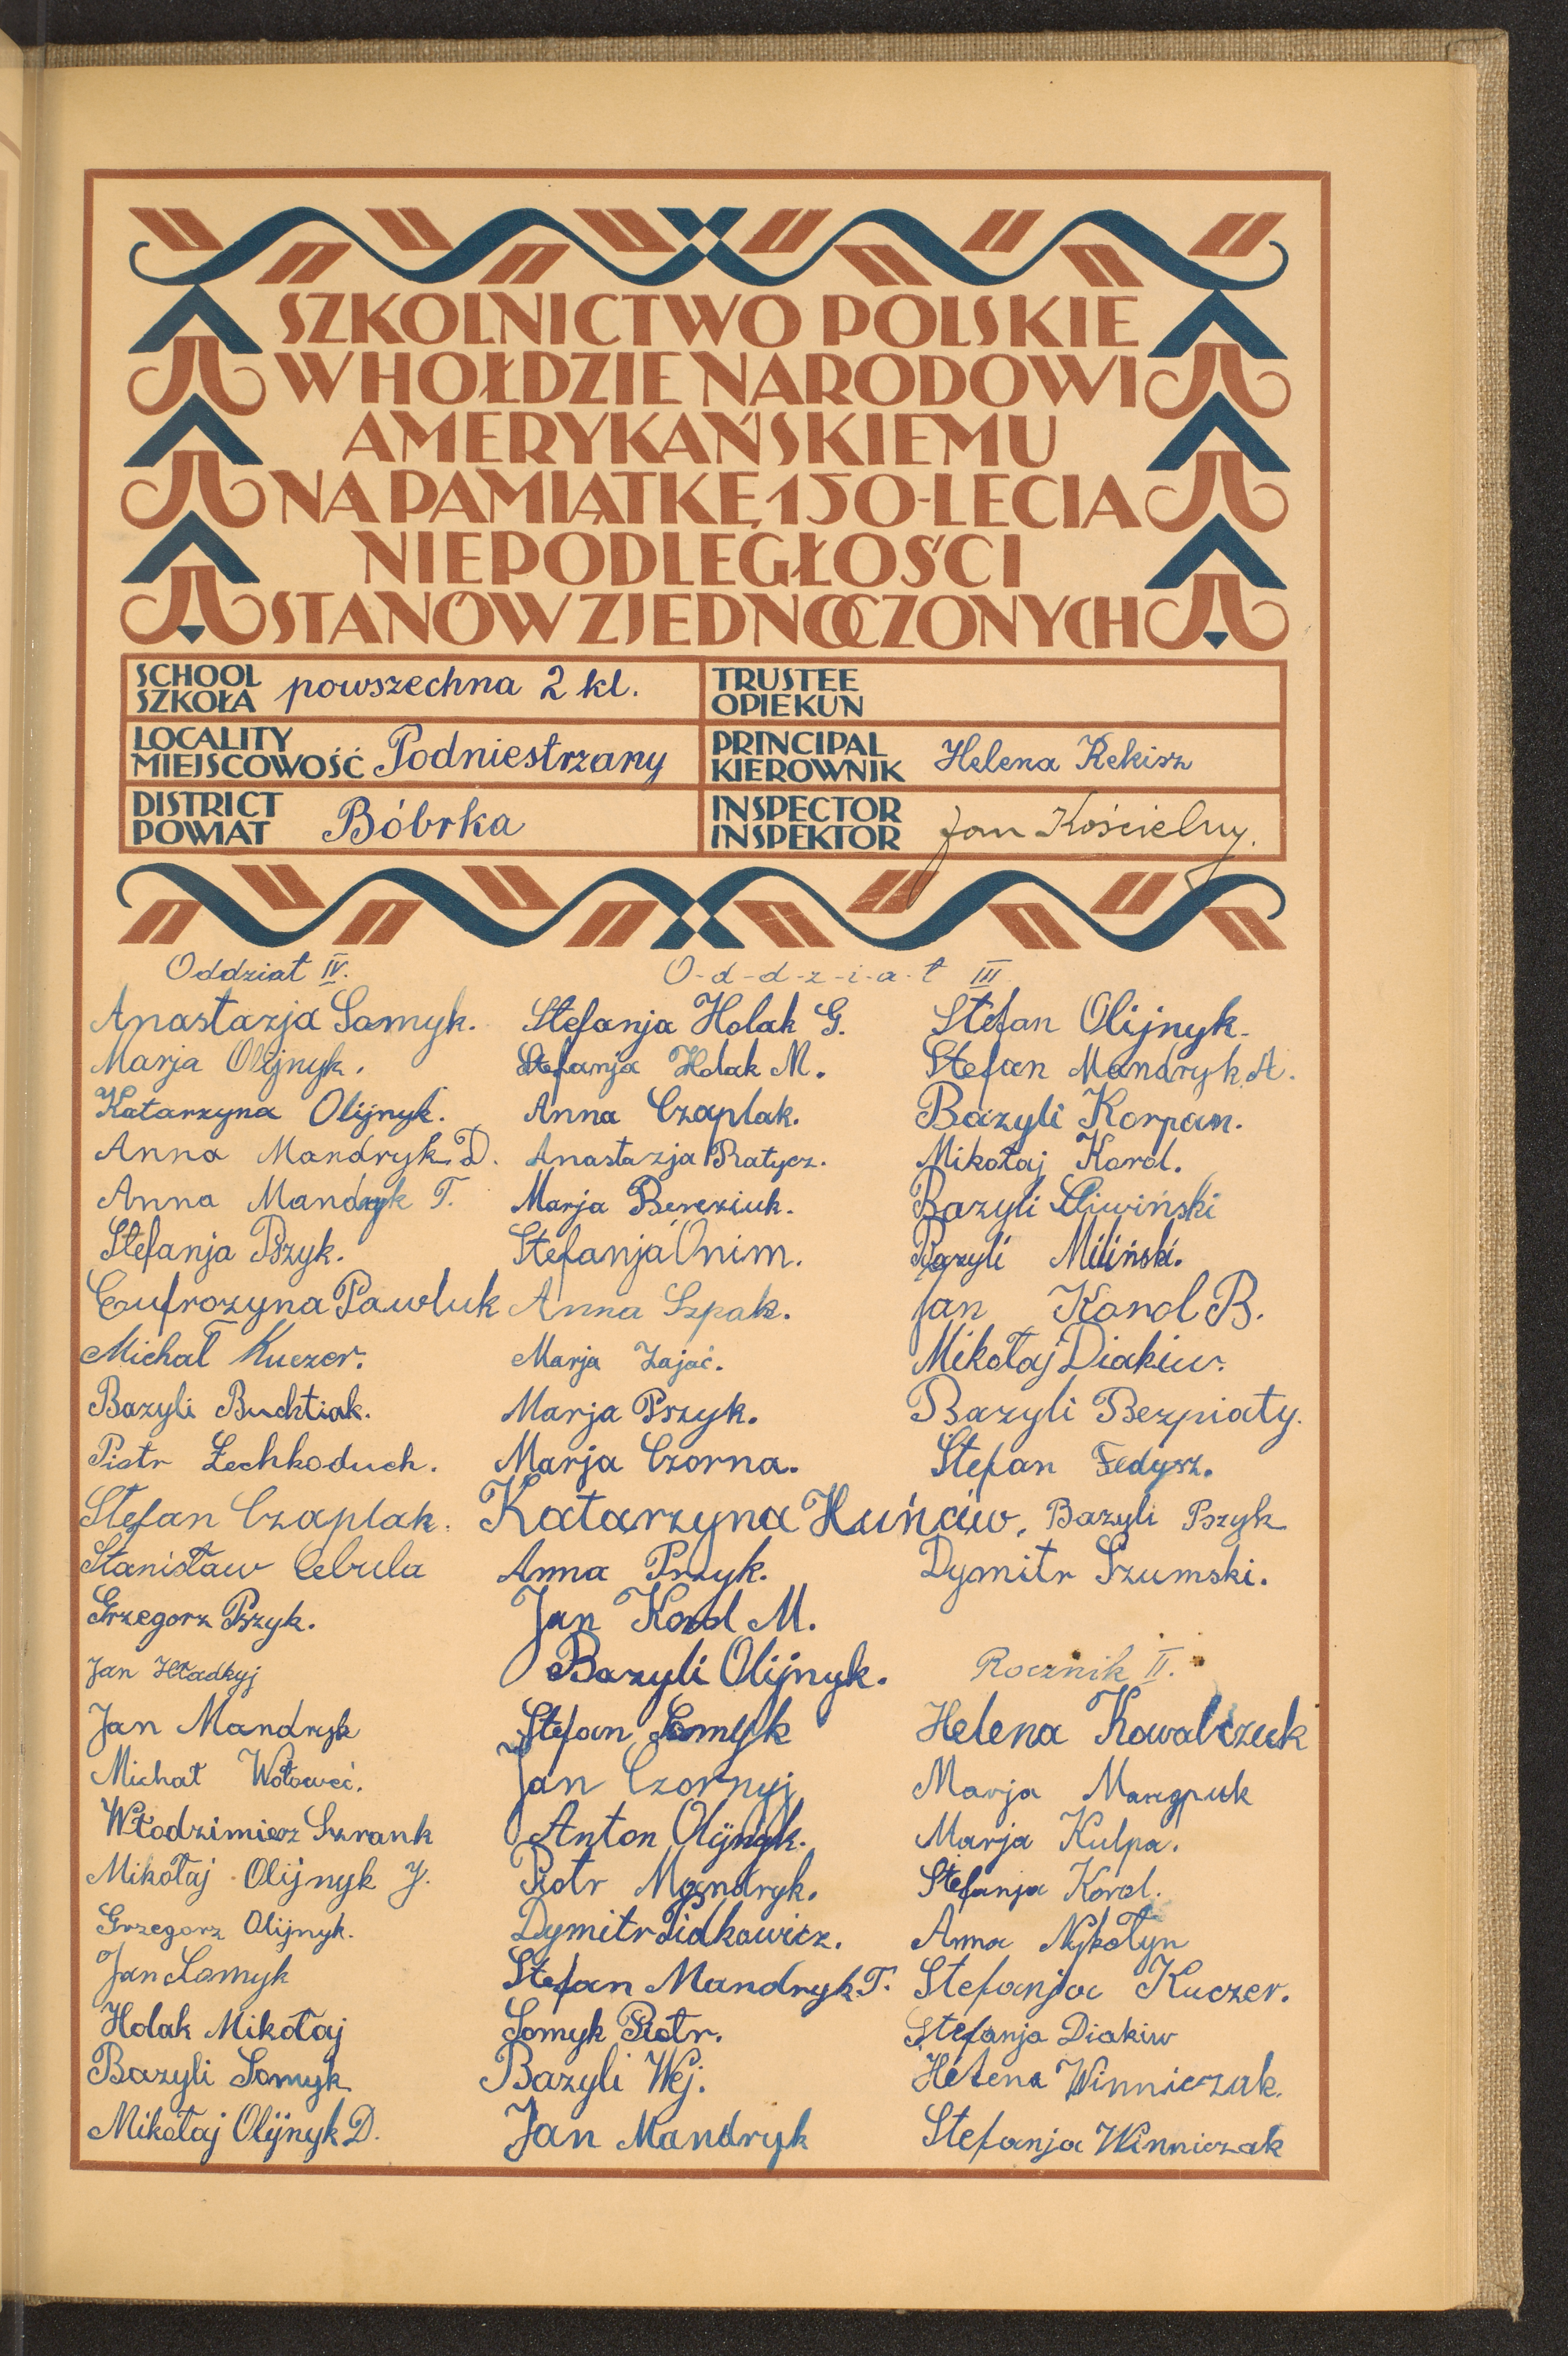 SZKOLNICTWO POLSKIE
W HOŁDZIE NARODOWI
AMERYKAŃSKIEMU
NA PAMIĄTKĘ 150-LECIA
NIEPODLEGŁOŚCI
STANÓW ZJEDNOCZONYCH
SCHOOL
SZKOŁA powszechna 2 kl.
TRUSTEE
OPIEKUN
LOCALITY
MIEJSCOWOŚĆ Podniestrzany
PRINCIPAL
KIEROWNIK Helena Rekisz
DISTRICT
POWIAT Bóbrka
INSPECTOR
INSPEKTOR Jan Kościelny.
Oddział IV.
Anastazja Somyk.
Marja Olijnyk.
Katarzyna Olijnyk.
Anna Mandryk D.
Anna Mandryk T.
Stefanja Pszyk.
Eufrozyna Pawluk
Michał Kuczer.
Bazyli Buchtiak.
Piotr Żechhoduch.
Stefan Czaplak.
Stanisław Cebula
Grzegorz Pszyk.
Jan Hładkyj
Jan Mandryk
Michał Wołoweć.
Włodzimierz Szrank
Mikołaj Olijnyk J.
Grzegorz Olijnyk.
Jan Somyk
Holak Mikołaj
Bazyli Somyk
Mikołaj Olijnyk D.
O-d-d-z-i-a-ł III
Stefanja Holak G.
Stefanja Holak M.
Anna Czaplak.
Anastazja Ratycz.
Marja Bereziuk.
Stefanja Onim.
Anna Szpak.
Marja Zając.
Marja Pszyk.
Marja Czorna.
Katarzyna Huńciw.
Anna Pszyk.
Jan Korol M.
Bazyli Olijnyk.
Stefan Somyk
Jan Czornyj
Anton Olijnyk.
Piotr Mandryk.
Dymitr Pidkowicz.
Stefan Mandryk T.
Somyk Piotr.
Bazyli Wej.
Jan Mandryk
Stefan Olijnyk.
Stefan Mandryk A.
Bazyli Korpan.
Mikołaj Korol.
Bazyli Śliwiński
Bazyli Miliński.
Jan Korol B.
Mikołaj Diakiw.
Bazyli Bezpiaty.
Stefan Fedysz.
Bazyli Pszyk
Dymitr Szumski.
Rocznik II.
Helena Kowalczuk
Marja
Marja Kulpa.
Stefanja Korol.
Anna Nykołyn
Stefanja Kuczer.
Stefanja Diakiw
Helena Winniczak.
Stefanja Winniczak